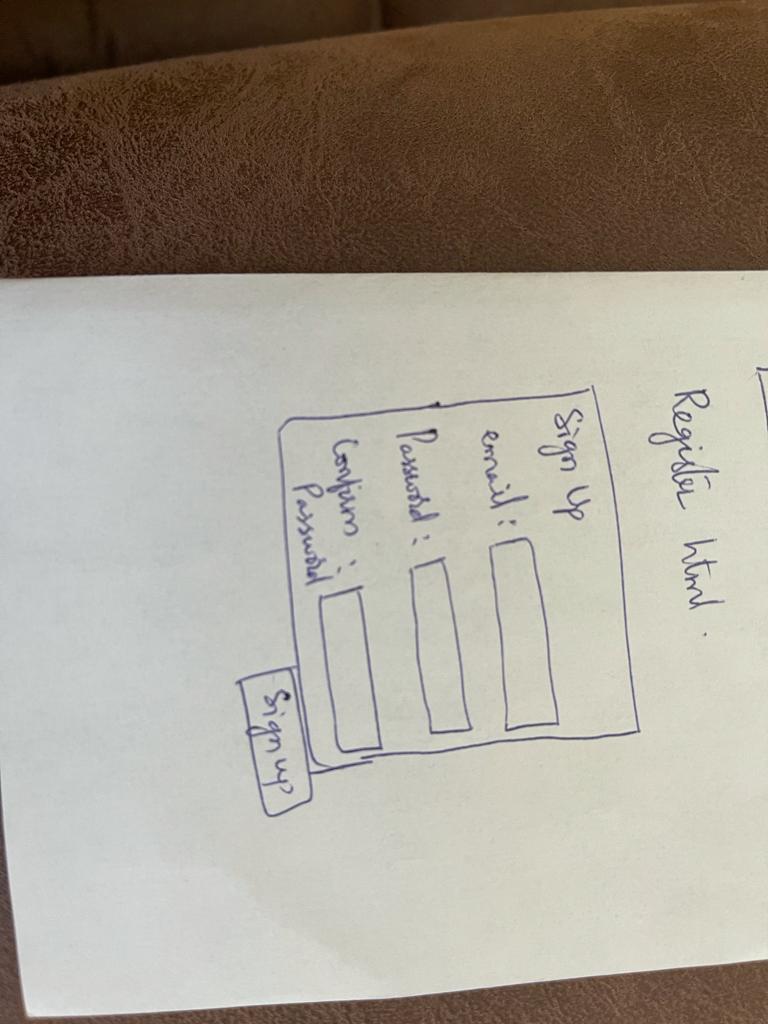 Register html.
Sign Up
email :
Password :
Confirm :
Password
Sign up